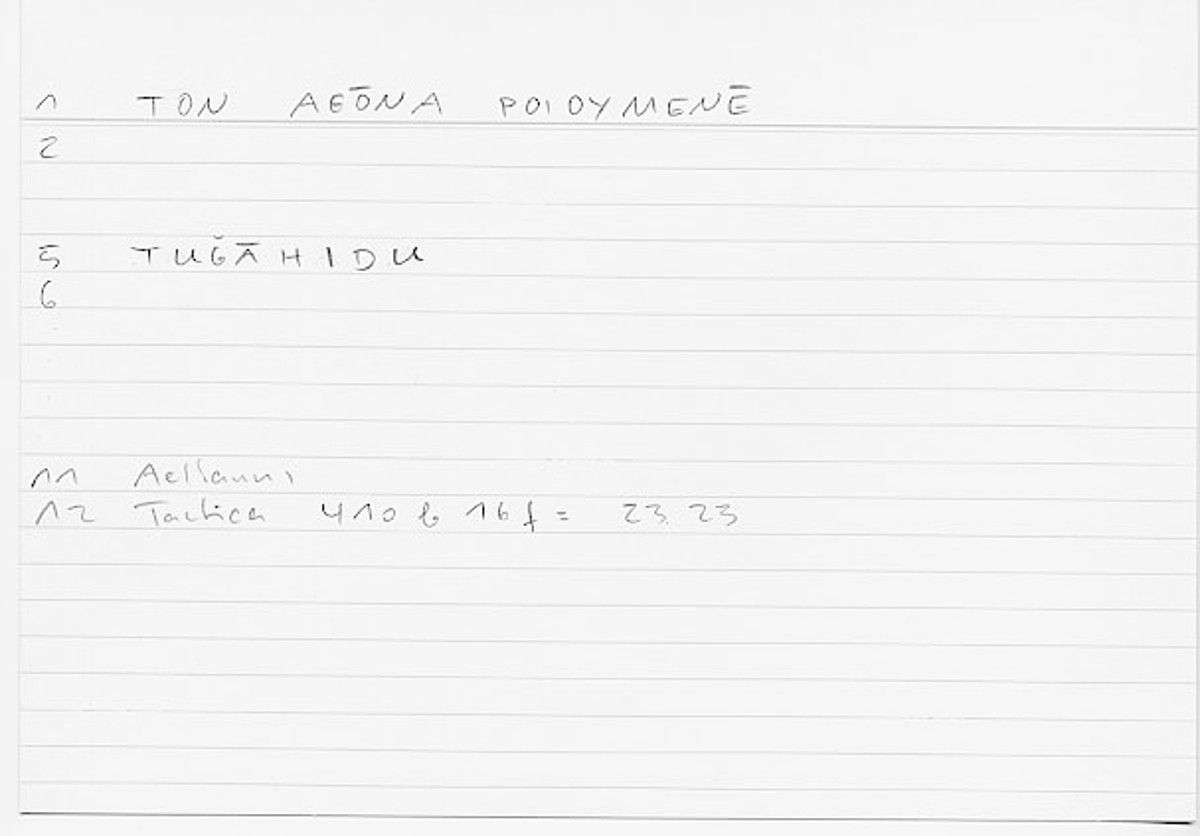 1 TON AGŌNA POIOYMENĒ
2
5 TUǦĀHIDU
6
11 Aeliani
12 Tactica 410 b 16 f = 23.23